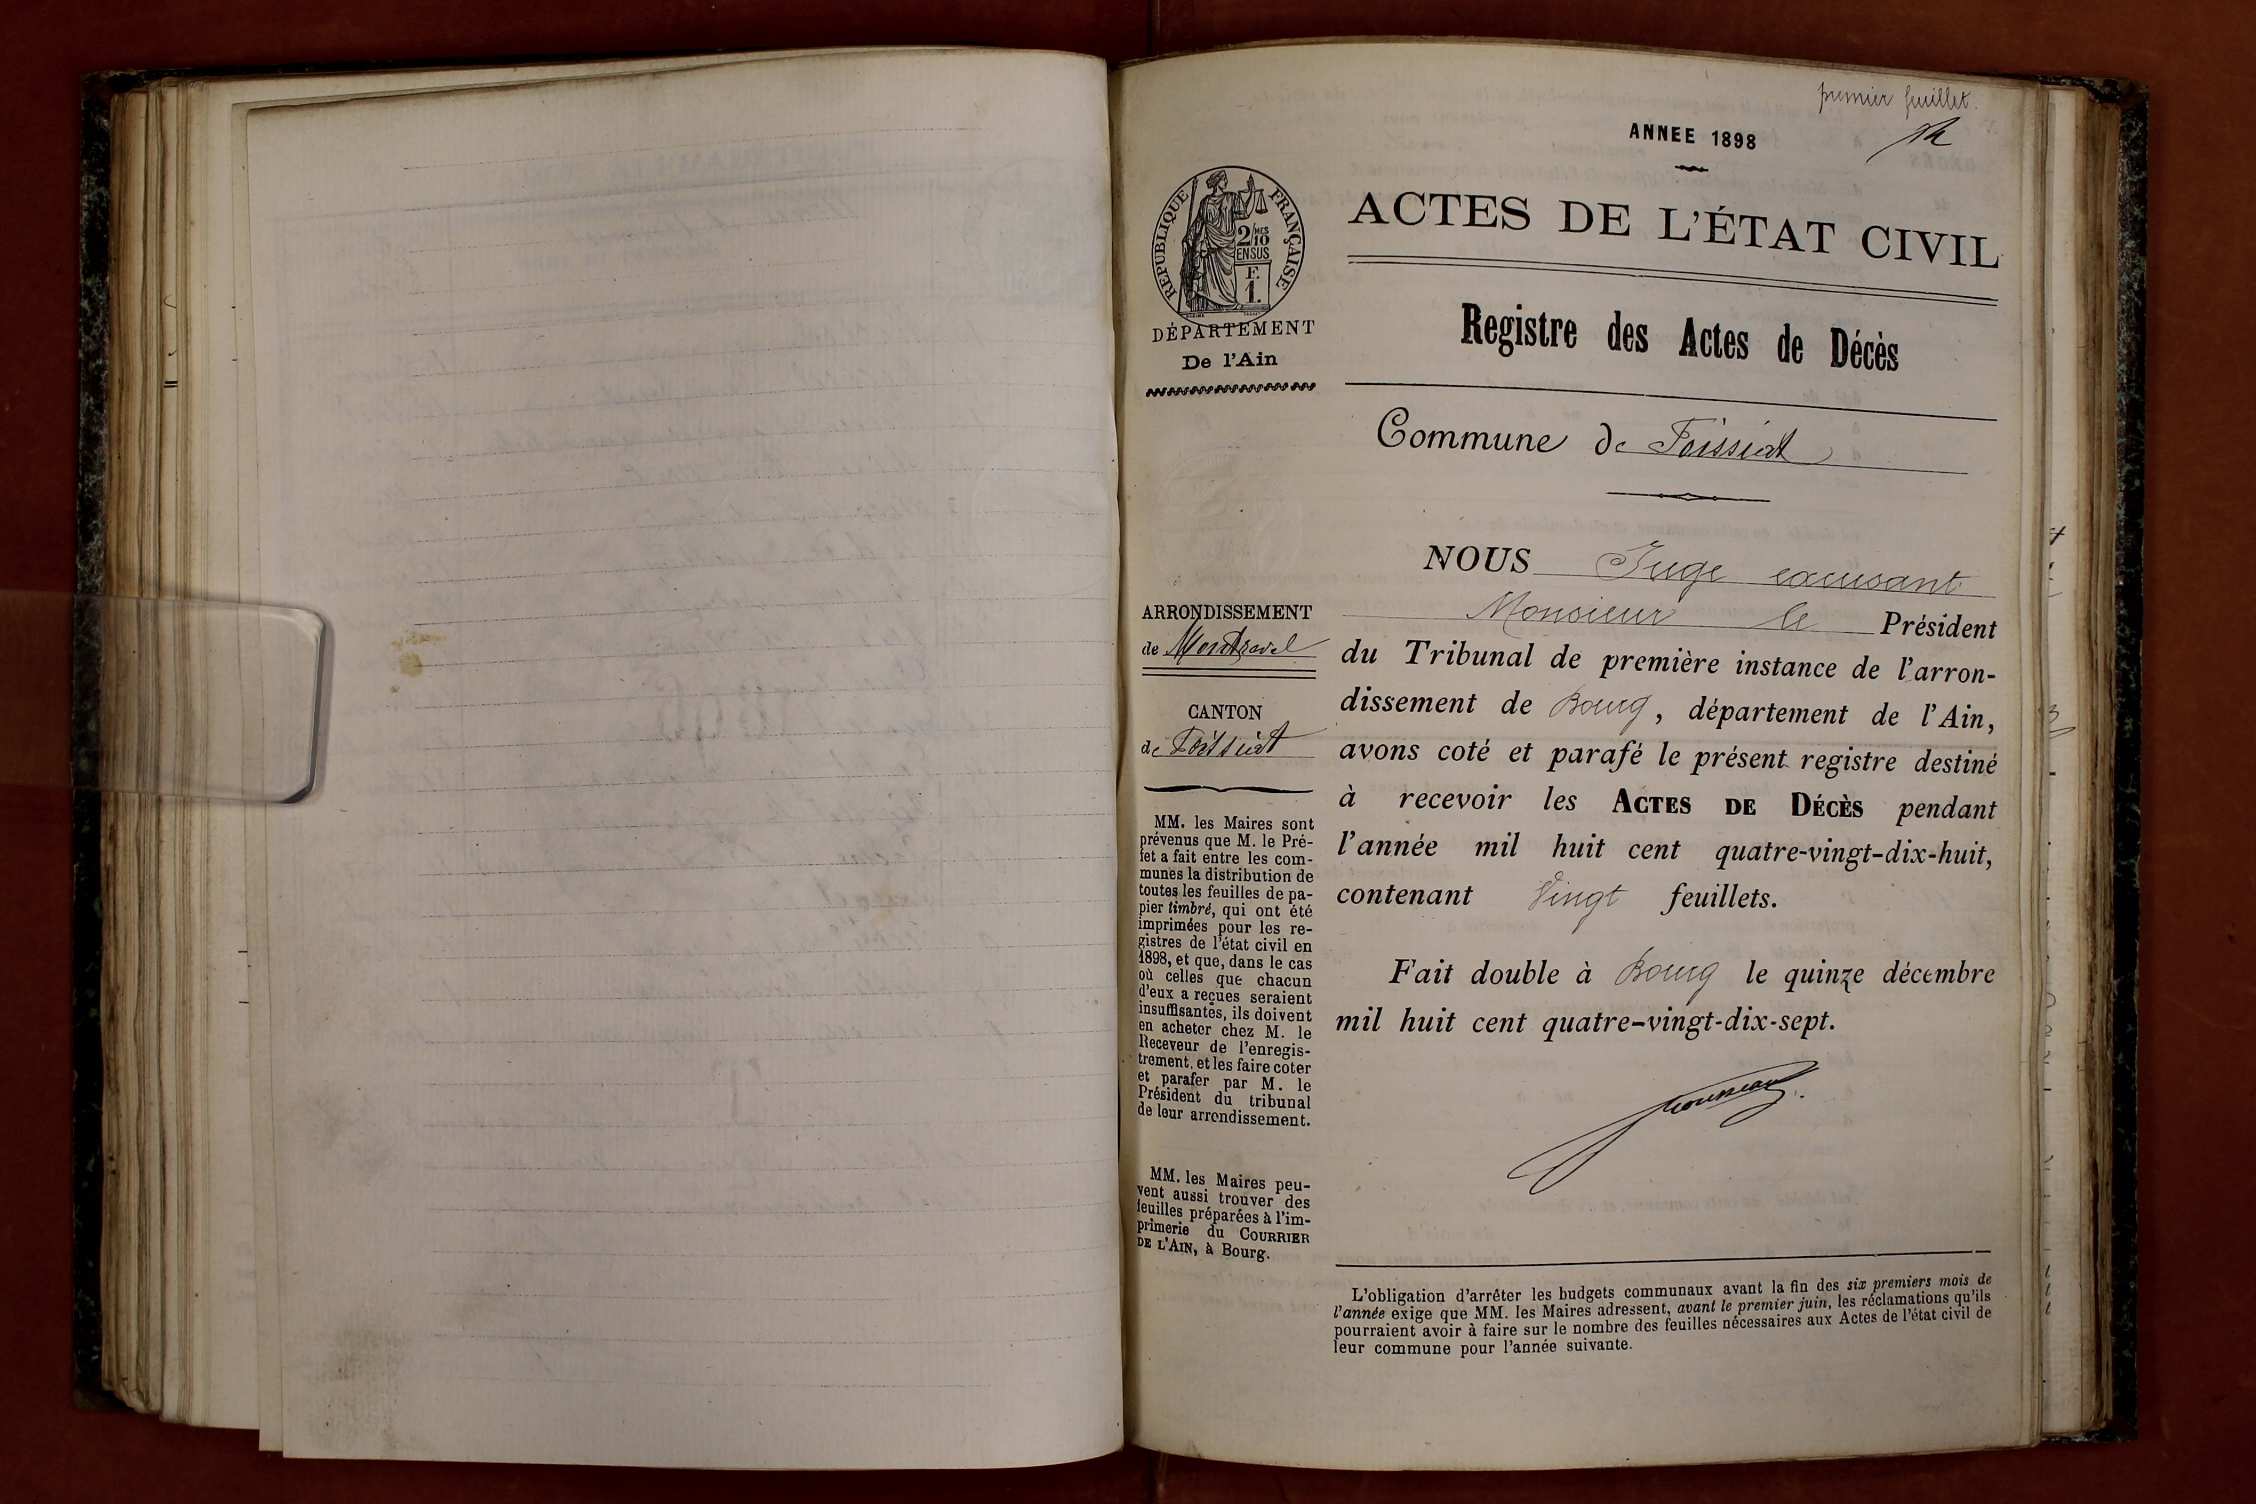 premier feuillet.
ANNEE 1898
RÉPUBLIQUE FRANÇAISE
2/10 MES
EN SUS
F.
1.
DÉPARTEMENT
De l'Ain
ACTES DE L'ÉTAT CIVIL
Registre des Actes de Décès
Commune de Foissiat
ARRONDISSEMENT
de Montravel
CANTON
de Foissiat
MM. les Maires sont
prévenus que M. le Pré-
fet a fait entre les com-
munes la distribution de
toutes les feuilles de pa-
pier timbré, qui ont été
imprimées pour les re-
gistres de l'état civil en
1898, et que, dans le cas
où celles que chacun
d'eux a reçues seraient
insuffisantes, ils doivent
en acheter chez M. le
Receveur de l'enregis-
trement, et les faire coter
et parafer par M. le
Président du tribunal
de leur arrondissement.
MM. les Maires peu-
vent aussi trouver des
feuilles préparées à l'im-
primerie du COURRIER
DE L'AIN, à Bourg.
NOUS Juge excusant
Monsieur le Président
du Tribunal de première instance de l'arron-
dissement de Bourg, département de l'Ain,
avons coté et parafé le présent registre destiné
à recevoir les ACTES DE DÉCÈS pendant
l'année mil huit cent quatre-vingt-dix-huit,
contenant Vingt feuillets.
Fait double à Bourg le quinze décembre
mil huit cent quatre-vingt-dix-sept.
L'obligation d'arrêter les budgets communaux avant la fin des six premiers mois de
l'année exige que MM. les Maires adressent, avant le premier juin, les réclamations qu'ils
pourraient avoir à faire sur le nombre des feuilles nécessaires aux Actes de l'état civil de
leur commune pour l'année suivante.